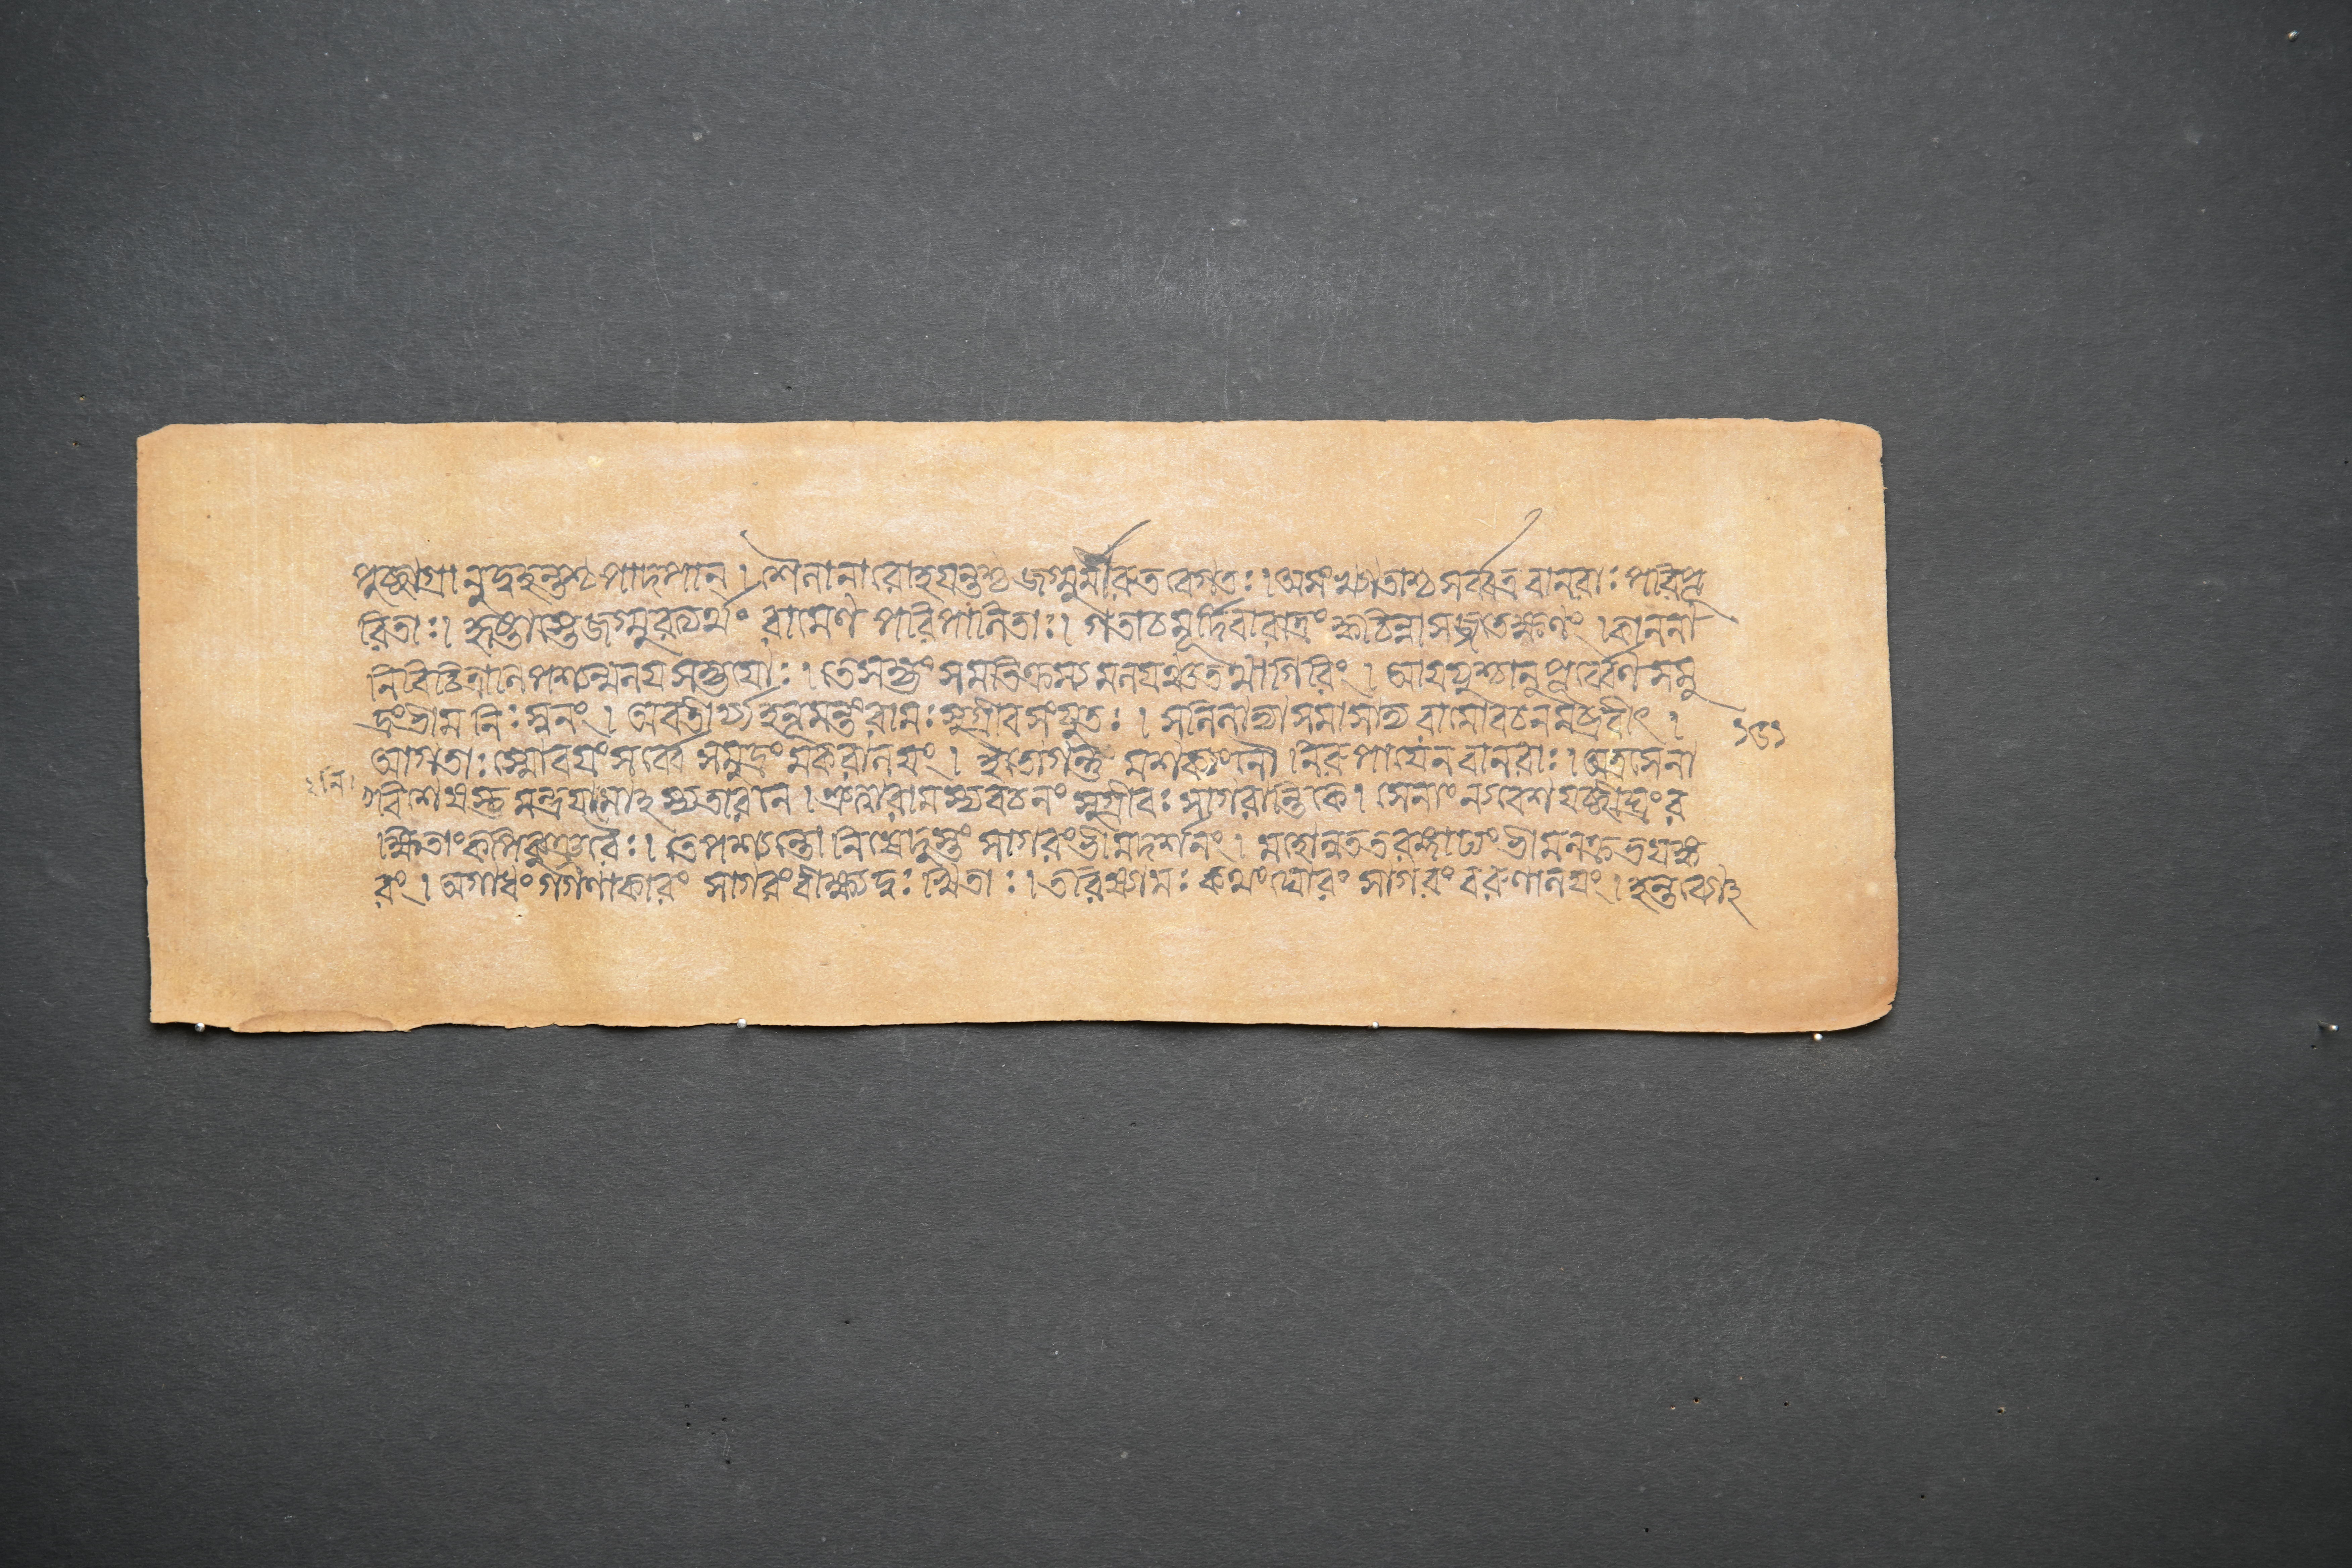 পুচ্ছাগ্রানুদ্বহন্তশ্চ পাদপান্ । শৈলানারোহযন্তশ্চ জগ্মুর্মারুতবেগতঃ । অসংখ্যাতাশ্চ সর্ব্বত্র বানরাঃ পরিপূ
রিতাঃ । হৃষ্টাস্তেজগ্মুরত্যর্থং রামেণ পরিপালিতাঃ । গতাচমূর্দিবারাত্রং ক্বচিন্নাসজ্জতেক্ষণং । কাননা
নিবিচিত্রাণি পশ্যন্মলযসহ্যযোঃ । তেসহ্যং সমতিক্রম্য মলযঞ্চতথাগিরিং । আযযুশ্চানুপূর্ব্বেণ সমু
দ্রংভীম নিঃস্বনং । অবতীর্য্যহনূমন্তং রামঃ সুগ্রীবসংযুতঃ । সলিলাভ্যাসমাসাদ্য রামোবচনমব্রবীৎ ।
আগতাঃ স্মোবযংসর্ব্বে সমুদ্রং মকরালযং । ইতোগন্তুমশক্যংনো নিরুপাযেন বানরাঃ । অত্রসেনা
নি
বেশোস্তু মন্ত্রযামোস্যতারণে । শ্রুত্বারামস্যবচনং সুগ্রীবঃ সাগরান্তিকে । সেনাং ন্যবেশযৎক্ষিপ্রং র
ক্ষিতাংকপিকুঞ্জরৈঃ । তেপশ্যন্তো বিষেদুস্তং সাগরংভীমদর্শনং । মহোন্নততরঙ্গাঢ্যং ভীমনক্রভযঙ্ক
রং । অগাধং গগণাকারং সাগরংবীক্ষ্যদুঃখিতাঃ । তরিষ্যামঃ কথংঘোরং সাগরং বরুণালযং ।
১৫১